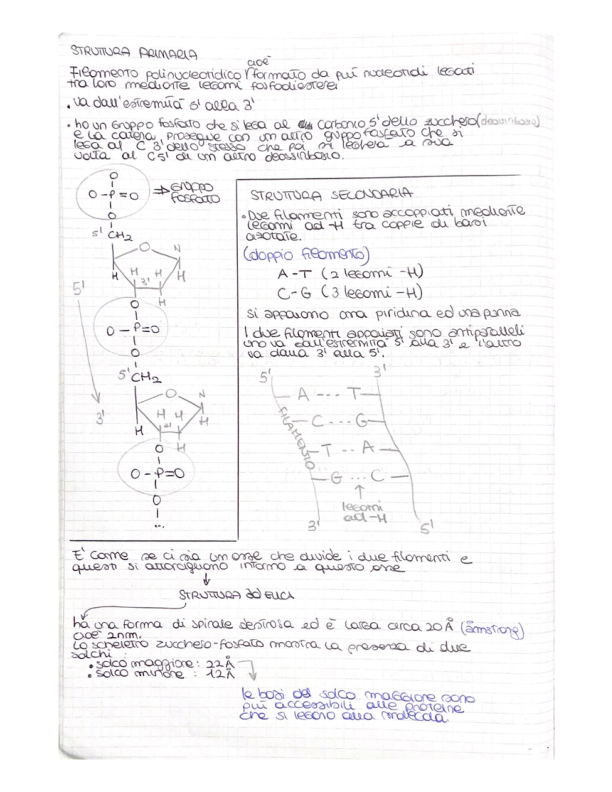 STRUTTURA PRIMARIA
cioè
Filamento polinucleotidico / formato da più nucleotidi legati
tra loro mediante legami fosfodiesterei
• va dall'estremità 5' alla 3'
• ho un gruppo fosfato che si lega al carbonio 5' dello zucchero (deossiribosio)
e la catena prosegue con un altro gruppo fosfato che si
lega al C 3' dello stesso che poi si legherà a sua
volta al C5' di un altro deossiribosio.
O
O-P=O ⇒ GRUPPO
FOSFATO
O
5' CH2
O N
H H H H
3'
5'
O H
O-P=O
O
5' CH2
O N
H H H
3'
H
3'
O H
O-P=O
O
...
STRUTTURA SECONDARIA
• Due filamenti sono accoppiati mediante
legami ad -H tra coppie di basi
azotate.
(doppio filamento)
A-T (2 legami -H)
C-G (3 legami -H)
si appaiono una piridina ed una purina
I due filamenti appaiati sono antiparalleli
uno va dall'estremità 5' alla 3' e l'altro
va dalla 3' alla 5'.
5' 3'
A --- T
C --- G
T -- A
G ... C
FILAMENTO
↑
legami
ad -H
3' 5'
E' come se ci sia un asse che divide i due filamenti e
questi si attorcigliano intorno a questo asse
↓
STRUTTURA ad ELICA
ha una forma di spirale destrosa ed è larga circa 20 Å (ämstrong)
cioè 2nm.
Lo scheletro zucchero-fosfato mostra la presenza di due
solchi:
• solco maggiore: 22Å
• solco minore: 12Å
le basi del solco maggiore sono
più accessibili alle proteine
che si legano alla molecola.